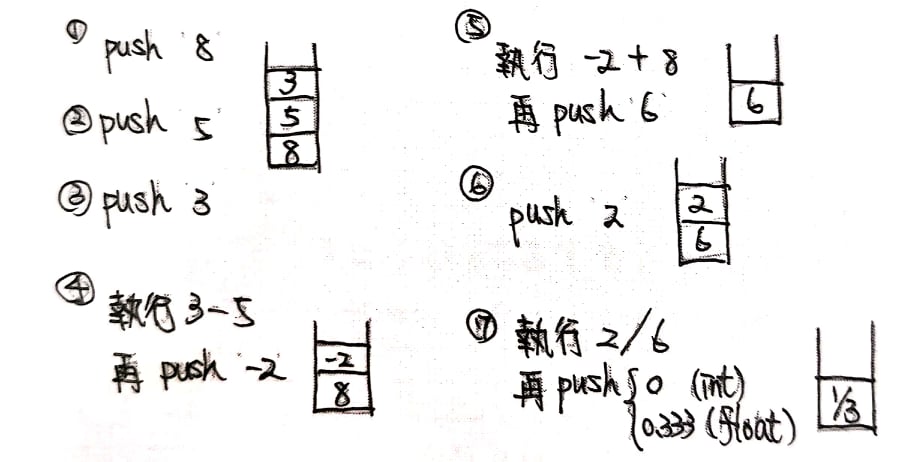 ① push 8
② push 5
③ push 3
3
5
8
④ 執行 3-5
再 push -2
-2
8
⑤
執行 -2+8
再 push 6
6
⑥
push 2
2
6
⑦ 執行 2/6
再 push { 0 (int)
0.333 (float)
1/3